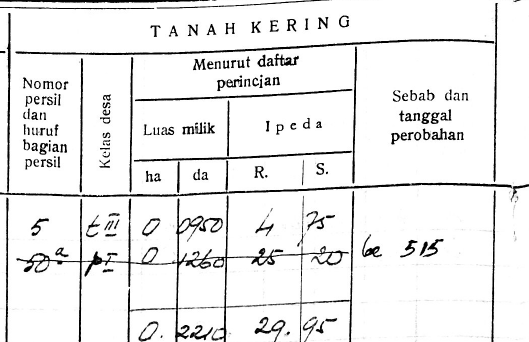 TANAH KERING
Nomor persil dan huruf bagian persil
Kelas desa
Menurut daftar perincian
Luas milik
Ipeda
Sebab dan tanggal perobahan
ha da R. S.
5 t III 0 0950 4 75
50 a p I 0 1260 25 20 ke 515
0. 2210 29. 95